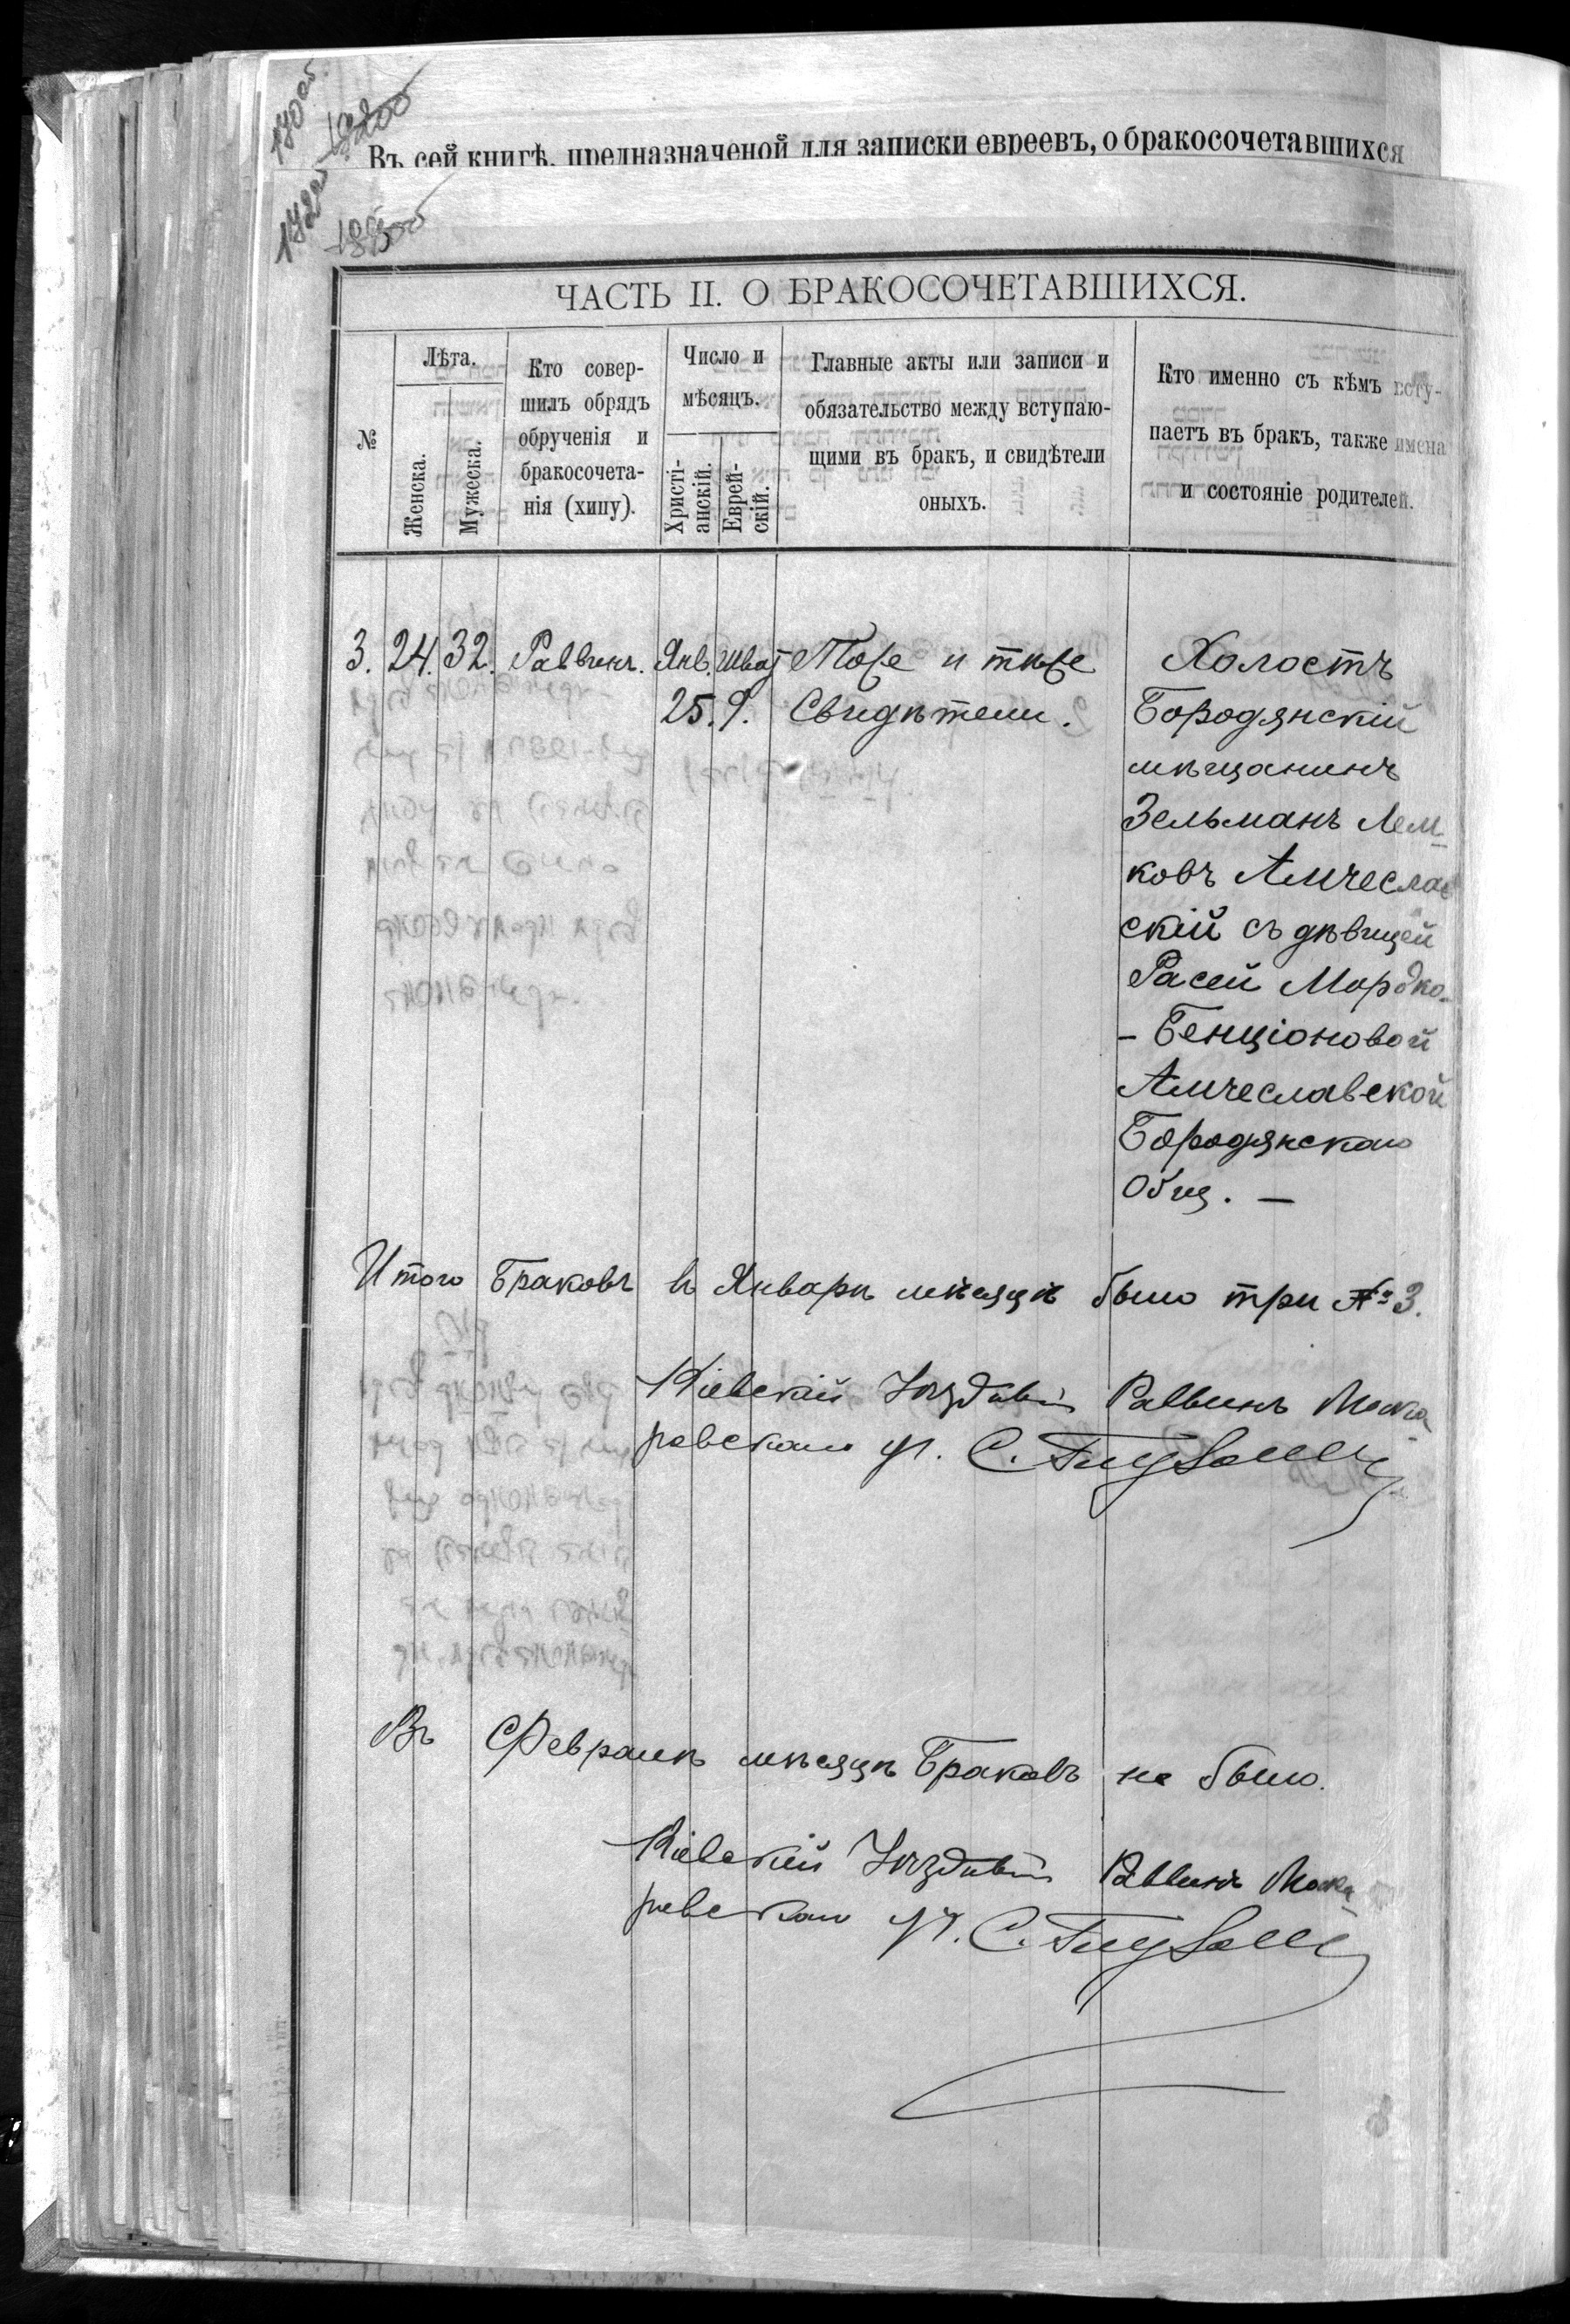 170 об.
Въ сей книгѣ, предназначеной для записки евреевъ, о бракосочетавшихся
172 об
ЧАСТЬ II. О БРАКОСОЧЕТАВШИХСЯ.
№
Лѣта.
Женска.
Мужеска.
Кто совер-
шилъ обрядъ
обрученія и
бракосочета-
нія (хипу).
Число и
мѣсяцъ.
Христі-
анскій.
Еврей-
скій.
Главные акты или записи и
обязательство между вступаю-
щими въ бракъ, и свидѣтели
оныхъ.
Кто именно съ кѣмъ всту-
паетъ въ бракъ, также имена
и состояніе родителей.
3. 24. 32. Раввинъ. Янв. Шват Тоже и тѣже
25. 9. Свидѣтели.
Холостъ
Бородянскій
мѣщанинъ
Зельманъ Лем-
ковъ Амчеслав
скій съ дѣвицей
Расей Мордко-
- Бенціоновой
Амчеславской
Бородянскаго
Общ. —
Итого Браковъ въ Январѣ мѣсяцѣ было три № 3.
Кіевскій Уѣздный Раввинъ Мака
ровскаго уч. С.
Въ Февралѣ мѣсяцѣ Браковъ не было.
Кіевскій Уѣздный Раввинъ Мака-
ровскаго уч. С.